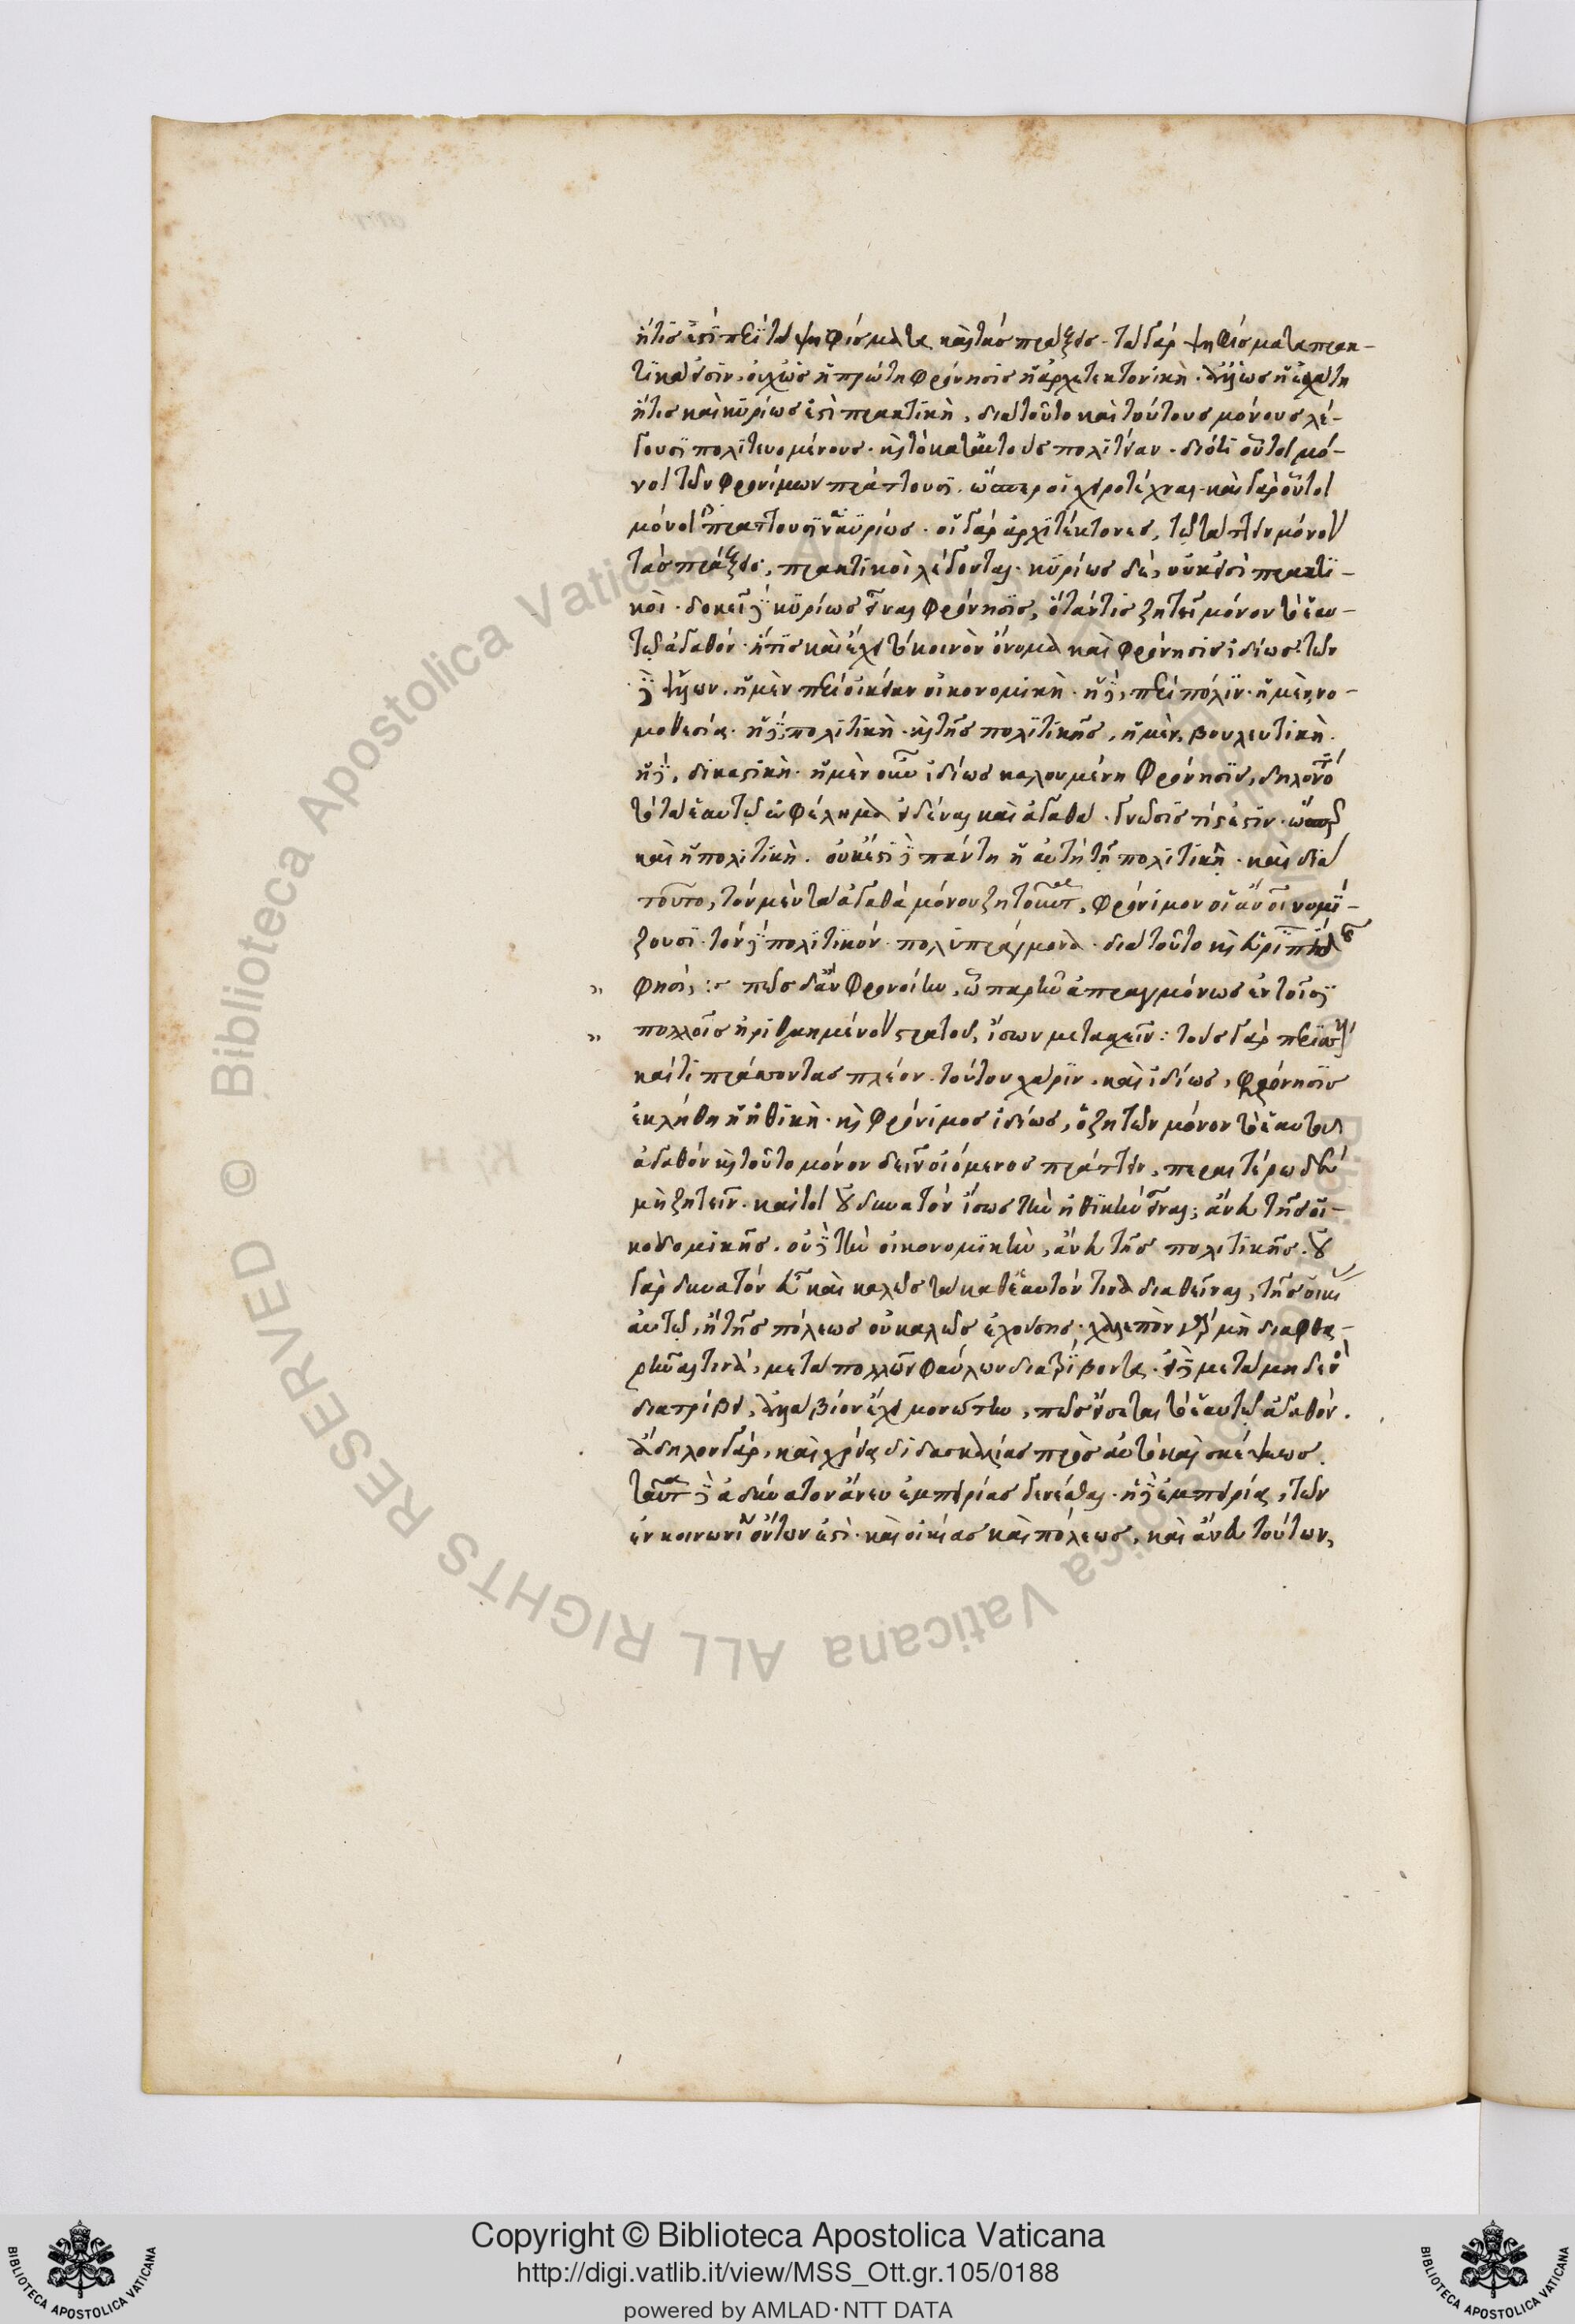 ἥτις ἐστὶ περὶ τὰ ψηφίσματα καὶ τὰς πράξεις. τὰ γὰρ ψηφίσματα πρακ-
τικά εἰσιν. οὐχ ὡς ἡ πρώτη φρόνησις ἡ ἀρχιτεκτονικὴ. ἀλλ' ὡς ἡ ἐσχάτη
ἥτις καὶ κυρίως ἐστὶ πρακτικὴ, διὰ τοῦτο καὶ τούτους μόνους λέ-
γουσι πολιτευομένους. καὶ τὸ κατ' αὐτοὺς πολιτείαν. διότι οὗτοι μό-
νοι τῶν φρονίμων πράττουσι. ὥσπερ οἱ χειροτέχναι. καὶ γὰρ οὗτοι
μόνοι πράττουσι κυρίως. οἱ γὰρ ἀρχιτέκτονες, τῷ τάττειν μόνον
τὰς πράξεις, πρακτικοὶ λέγονται. κυρίως δὲ, οὐκ εἰσὶ πρακτι-
κοὶ. δοκεῖ δὲ κυρίως εἶναι φρόνησις, ὅταν τις ζητεῖ μόνον τὸ ἑαυ-
τῷ ἀγαθόν. ἥτις καὶ ἔχει τὸ κοινὸν ὄνομα καὶ φρόνησις ἰδίως. τῶν
δὲ ἄλλων. ἡ μὲν περὶ οἰκίαν οἰκονομικὴ. ἡ δὲ, περὶ πόλιν. ἡ μὲν, νο-
μοθεσία. ἡ δὲ πολιτικὴ. καὶ τῆς πολιτικῆς, ἡ μὲν, βουλευτικὴ.
ἡ δὲ, δικαστικὴ. ἡ μὲν οὖν ἰδίως καλουμένη φρόνησις, δηλονότι
τὸ τὰ ἑαυτῷ ὠφέλημα εἰδέναι καὶ ἀγαθὰ. γνῶσίς τίς ἐστιν. ὥσπερ
καὶ ἡ πολιτικὴ. οὐκ ἔστι δὲ πάντη ἡ αὐτὴ τῇ πολιτικῇ. καὶ διὰ
τοῦτο, τὸν μὲν τὰ ἀγαθὰ μόνου ζητοῦντα, φρόνιμον οἱ ἄνοι νομί-
ζουσι. τὸν δὲ πολιτικὸν. πολυπράγμονα. διὰ τοῦτο καὶ Εὐριπίδης
φησὶ, :- πῶς δ' ἂν φρονοίην, ᾧ παρῆν ἀπραγμόνως ἐν τοῖσι
πολλοῖς ἠριθμημένου στρατοῦ, ἴσων μετασχεῖν: τοὺς γὰρ περισσοὺς
καί τι πράσσοντας πλέον. τούτου χάριν. καὶ ἰδίως, φρόνησις
ἐκλήθη ἡ ἠθικὴ. καὶ φρόνιμος ἰδίως, ὁ ζητῶν μόνον τὸ ἑαυτοῦ
ἀγαθόν καὶ τοῦτο μόνον δεῖν οἰόμενος πράττειν, περαιτέρω δὲ
μὴ ζητεῖν. καίτοι οὐ δυνατὸν ἴσως τὴν ἠθικὴν εἶναι, ἄνευ τῆς οἰ-
κοδομικῆς. οὐδὲ τὴν οἰκονομικὴν, ἄνευ τῆς πολιτικῆς. οὐ
γὰρ δυνατὸν εὖ καὶ καλῶς τὰ καθ' ἑαυτόν τινα διαθεῖναι, τῆς οἰκίας
αὐτῷ, ἢ τῆς πόλεως οὐ καλῶς ἐχούσης. χαλεπὸν γὰρ μὴ διαφθα-
ρῆναι τινὰ, μετὰ πολλῶν φαύλων διατρίβοντα. εἰ δὲ μετὰ μηδενὸς
διατρίβει, ἀλλὰ βίον ἔχει μονώτην, πῶς εἴσεται τὸ ἑαυτῷ ἀγαθόν.
ἄδηλον γὰρ, καὶ χρεία διδασκαλίας πρὸς αὐτὸ καὶ σκέψεως.
ταῦτα δὲ ἀδύνατον ἄνευ ἐμπειρίας γενέσθαι. ἡ δὲ ἐμπειρία, τῶν
ἐν κοινωνίᾳ ὄντων ἐστὶ. καὶ οἰκίας καὶ πόλεως, καὶ ἄνευ τούτων,
Copyright © Biblioteca Apostolica Vaticana
http://digi.vatlib.it/view/MSS_Ott.gr.105/0188
powered by AMLAD·NTT DATA